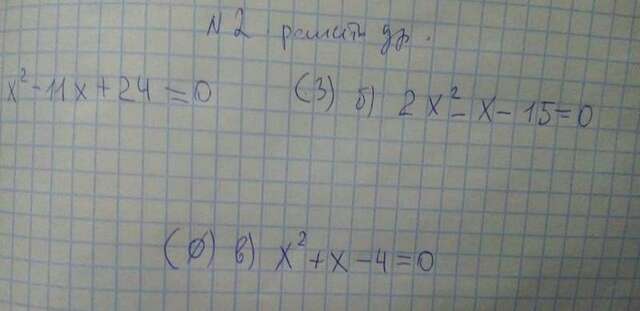 N2 решить ур.
x² - 11x + 24 = 0 (3) б) 2x² - x - 15 = 0
(∅) в) x² + x - 4 = 0